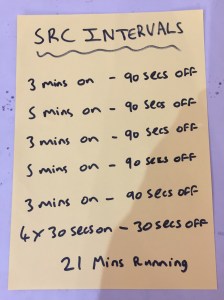 SRC INTERVALS
3 mins on - 90 secs OFF
5 mins on - 90 secs OFF
3 mins on - 90 secs OFF
5 mins on - 90 secs OFF
3 mins on - 90 secs OFF
4 x 30 secs on - 30 secs OFF
21 Mins Running